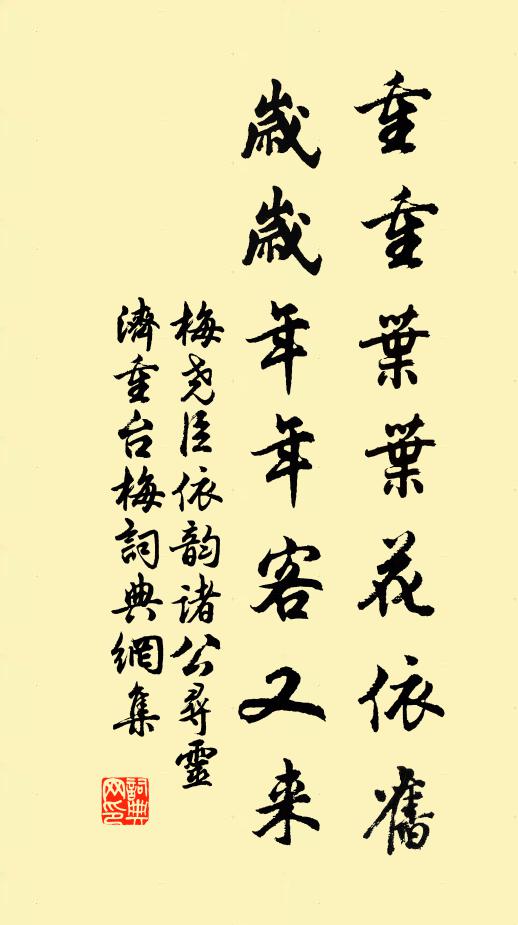 重重葉葉花依舊
歲歲年年客又来
梅尧臣依韵诸公尋靈
濟重台梅詞典網集
詞典
网印